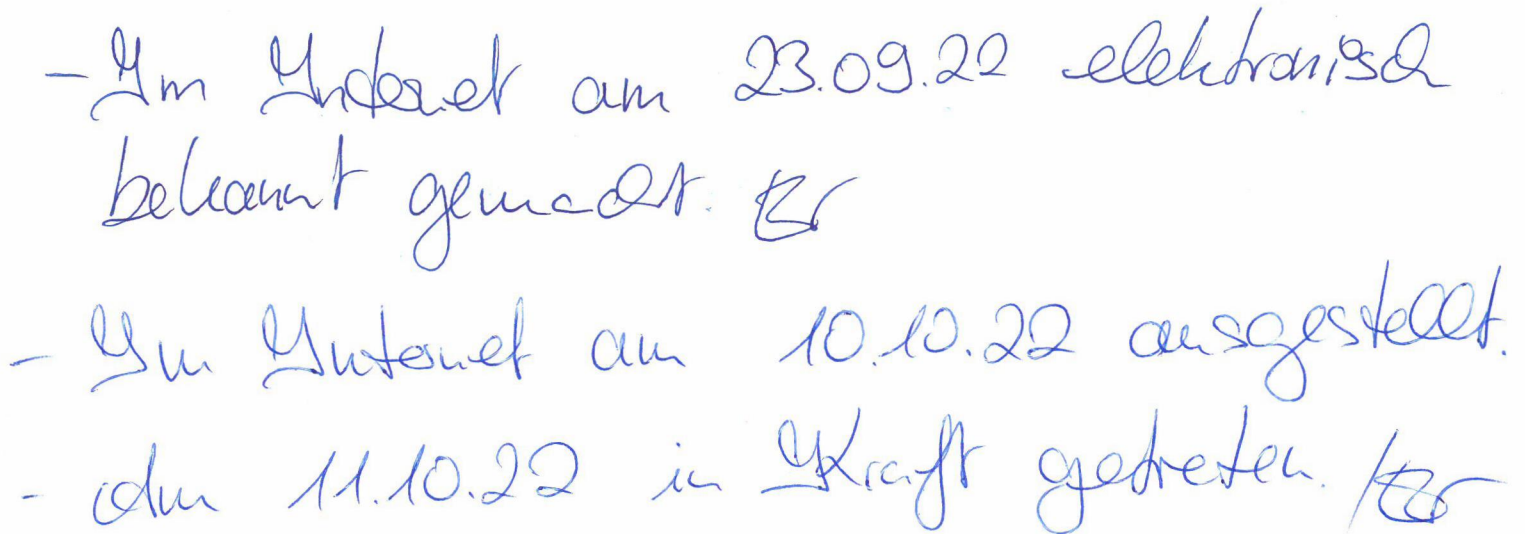 - Im Internet am 23.09.22 elektronisch
bekannt gemacht.
- Im Internet am 10.10.22 ausgestellt.
- Am 11.10.22 in Kraft getreten.